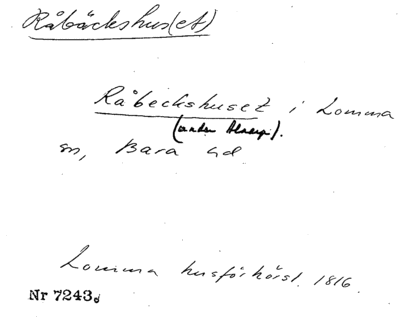 Råbäckshus(et)
Råbeckshuset i Lomma
(under Alnarp).
sn, Bara hd.
Lomma husförhörsl. 1816.
Nr 7243